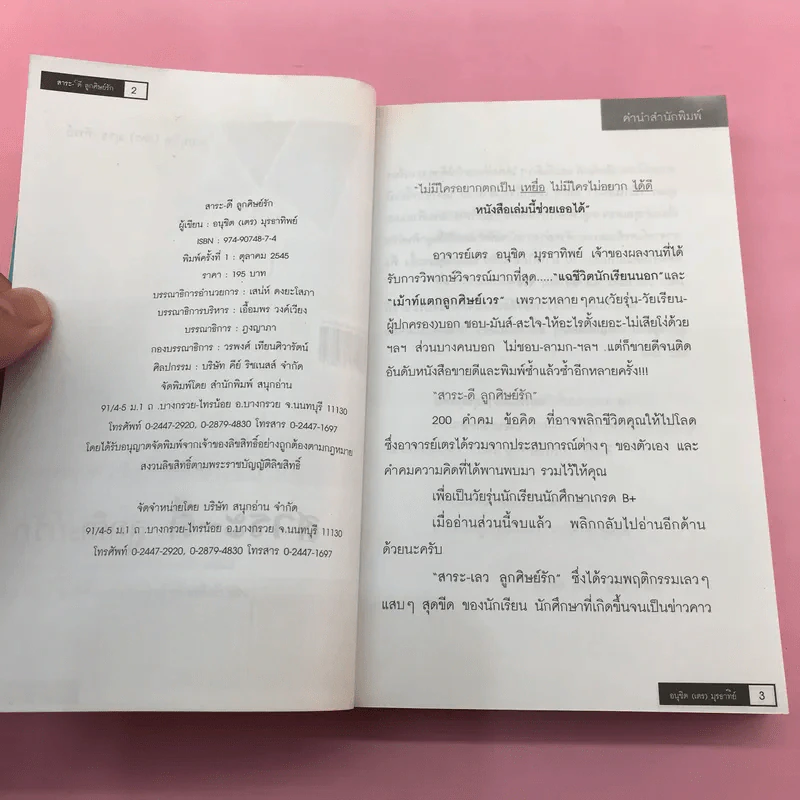 สาระ-ดี ลูกศิษย์รัก 2
สาระ-ดี ลูกศิษย์รัก
ผู้เขียน : อนุชิต (เตร) มุรธาทิพย์
ISBN : 974-90748-7-4
พิมพ์ครั้งที่ 1 : ตุลาคม 2545
ราคา : 195 บาท
บรรณาธิการอำนวยการ : เสน่ห์ คงยะโสภา
บรรณาธิการบริหาร : เอื้อมพร วงค์เวียง
บรรณาธิการ : ภูงญาภา
กองบรรณาธิการ : วรพงศ์ เทียนศิวารัตน์
ศิลปกรรม : บริษัท คีย์ ริชเนสส์ จำกัด
จัดพิมพ์โดย สำนักพิมพ์ สนุกอ่าน
91/4-5 ม.1 ถ .บางกรวย-ไทรน้อย อ.บางกรวย จ.นนทบุรี 11130
โทรศัพท์ 0-2447-2920, 0-2879-4830 โทรสาร 0-2447-1697
โดยได้รับอนุญาตจัดพิมพ์จากเจ้าของลิขสิทธิ์อย่างถูกต้องตามกฎหมาย
สงวนลิขสิทธิ์ตามพระราชบัญญัติลิขสิทธิ์
จัดจำหน่ายโดย บริษัท สนุกอ่าน จำกัด
91/4-5 ม.1 ถ .บางกรวย-ไทรน้อย อ.บางกรวย จ.นนทบุรี 11130
โทรศัพท์ 0-2447-2920, 0-2879-4830 โทรสาร 0-2447-1697
คำนำสำนักพิมพ์
"ไม่มีใครอยากตกเป็น เหยื่อ ไม่มีใครไม่อยาก ได้ดี
หนังสือเล่มนี้ช่วยเธอได้"
อาจารย์เตร อนุชิต มุรธาทิพย์ เจ้าของผลงานที่ได้
รับการวิพากษ์วิจารณ์มากที่สุด....."แฉชีวิตนักเรียนนอก"และ
"เม้าท์แตกลูกศิษย์เวร" เพราะหลายๆคน(วัยรุ่น-วัยเรียน-
ผู้ปกครอง)บอก ชอบ-มันส์-สะใจ-ให้อะไรตั้งเยอะ-ไม่เสียโง่ด้วย
ฯลฯ ส่วนบางคนบอก ไม่ชอบ-ลามก-ฯลฯ .แต่ก็ขายดีจนติด
อันดับหนังสือขายดีและพิมพ์ซ้ำแล้วซ้ำอีกหลายครั้ง!!!
"สาระ-ดี ลูกศิษย์รัก"
200 คำคม ข้อคิด ที่อาจพลิกชีวิตคุณให้ไปโลด
ซึ่งอาจารย์เตรได้รวมจากประสบการณ์ต่างๆ ของตัวเอง และ
คำคมความคิดที่ได้พานพบมา รวมไว้ให้คุณ
เพื่อเป็นวัยรุ่นนักเรียนนักศึกษาเกรด B+
เมื่ออ่านส่วนนี้จบแล้ว พลิกกลับไปอ่านอีกด้าน
ด้วยนะครับ
"สาระ-เลว ลูกศิษย์รัก" ซึ่งได้รวมพฤติกรรมเลวๆ
แสบๆ สุดขีด ของนักเรียน นักศึกษาที่เกิดขึ้นจนเป็นข่าวคาว
อนุชิต (เตร) มุรธาทิย์ 3